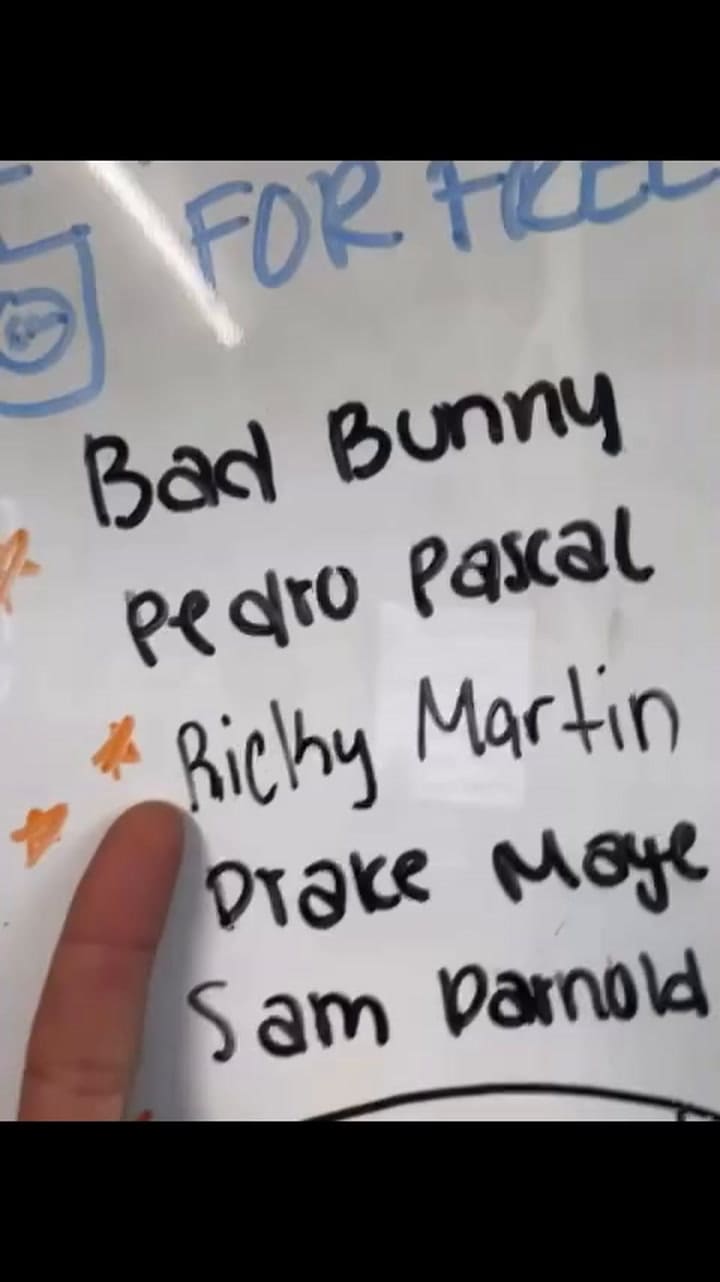 FOR FREE
Bad Bunny
Pedro Pascal
Ricky Martin
Drake Maye
Sam Darnold